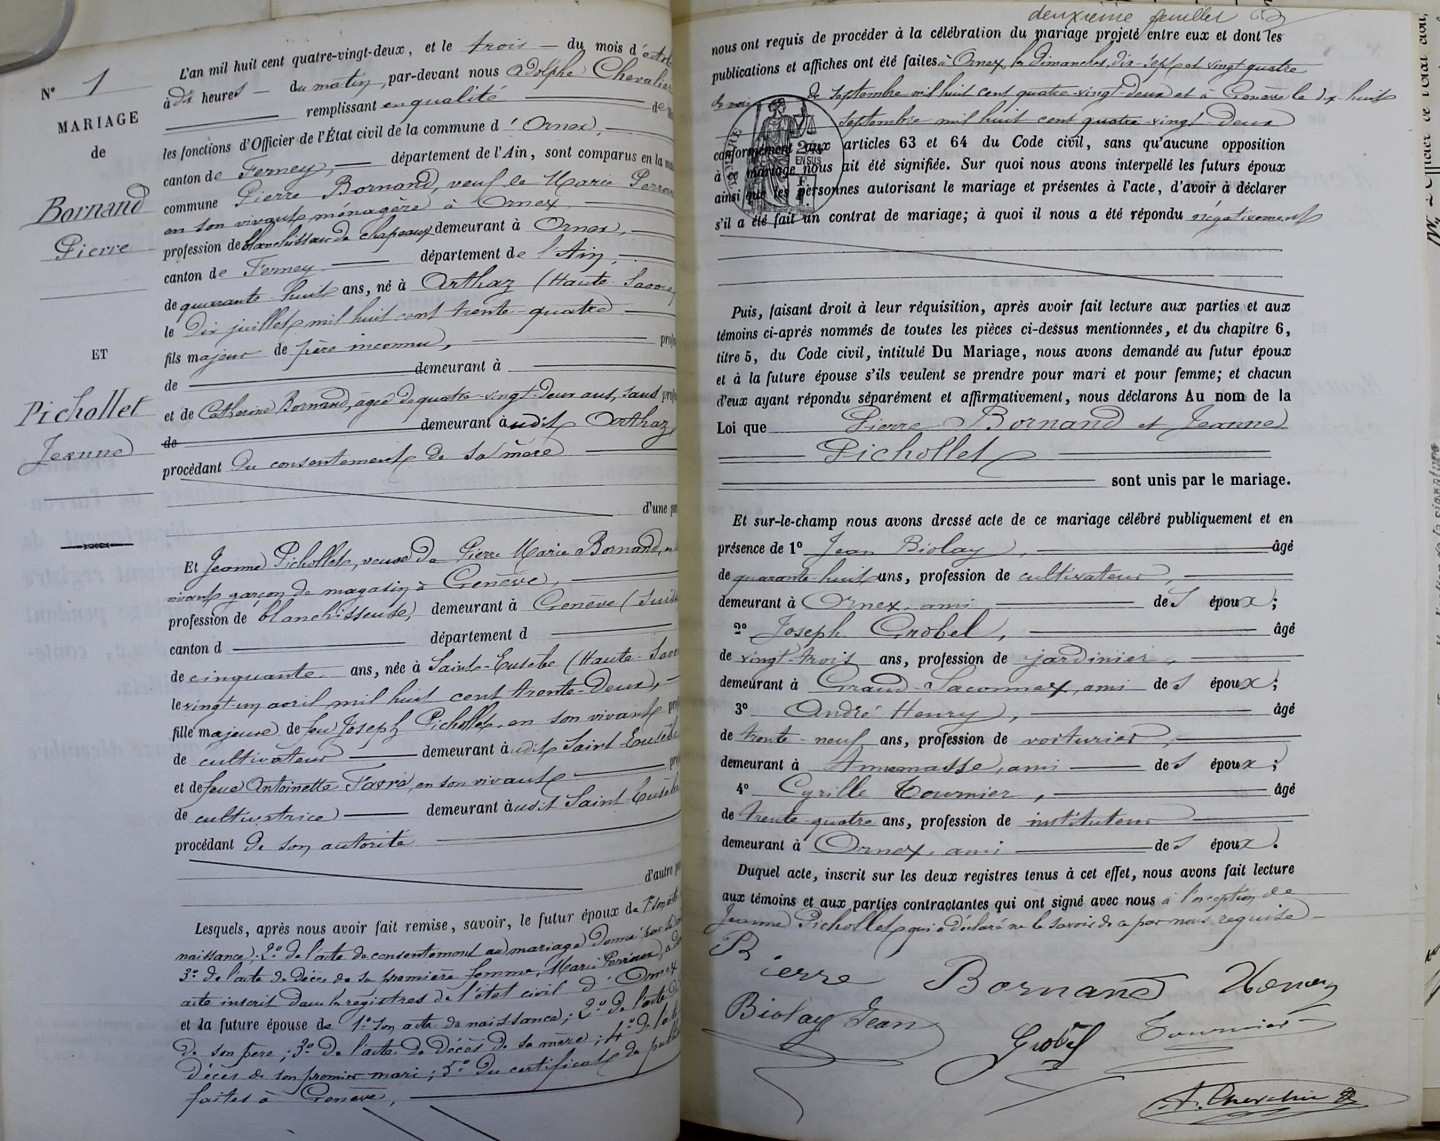 N° 1
MARIAGE
de
Bornand
Pierre
ET
Pichollet
Jeanne
L'an mil huit cent quatre-vingt-deux, et le trois du mois d'
à dix heures du matin, par-devant nous Adolphe Chevalier
remplissant en qualité de
les fonctions d'Officier de l'État civil de la commune d'Ornex,
canton de Ferney, département de l'Ain, sont comparus en la
commune Pierre Bornand, veuf de Marie
en son vivant ménagère à Ornex
profession de blanchisseur de chapeaux demeurant à Ornex,
canton de Ferney département de l'Ain,
de quarante huit ans, né à Arthaz (Haute Savoie
le dix juillet mil huit cent trente-quatre
fils majeur de père inconnu,
de demeurant à
et de Catherine Bornand, âgée de quatre-vingt-deux ans, sans
de demeurant à udit Arthaz
procédant du consentement de sa mère
d'une
Et Jeanne Pichollet, veuve de Pierre Marie Bornand,
vivant garçon de magasin à Genève,
profession de blanchisseuse, demeurant à Genève (Suisse
canton d département d
de cinquante ans, née à Saint-Eusèbe (Haute-Savoie
le vingt-un avril mil huit cent trente-deux,
fille majeure de feu Joseph Pichollet, en son vivant
de cultivateur demeurant à udit Saint Eusèbe
et de feue Antoinette Favre, en son vivant
de cultivatrice demeurant à udit Saint Eusèbe
procédant de son autorité
d'autre
Lesquels, après nous avoir fait remise, savoir, le futur époux de 1° son acte
naissance; 2° de l'acte de consentement au mariage donné par
3° de l'acte de décès de sa première femme, Marie
acte inscrit dans le registres de l'état civil d'Ornex
et la future épouse de 1° son acte de naissance; 2° de l'acte de
de son père; 3° de l'acte de décès de sa mère; 4° de
décès de son premier mari; 5° du certificat de
faites à Genève,
deuxième feuillet
nous ont requis de procéder à la célébration du mariage projeté entre eux et dont les
publications et affiches ont été faites à Ornex, les dimanches, dix-sept et vingt quatre
de septembre mil huit cent quatre-vingt-deux et à Genève le dix-huit
septembre mil huit cent quatre-vingt-deux
conformément aux articles 63 et 64 du Code civil, sans qu'aucune opposition
à ce mariage nous ait été signifiée. Sur quoi nous avons interpellé les futurs époux
ainsi que les personnes autorisant le mariage et présentes à l'acte, d'avoir à déclarer
s'il a été fait un contrat de mariage; à quoi il nous a été répondu négativement
Puis, faisant droit à leur réquisition, après avoir fait lecture aux parties et aux
témoins ci-après nommés de toutes les pièces ci-dessus mentionnées, et du chapitre 6,
titre 5, du Code civil, intitulé Du Mariage, nous avons demandé au futur époux
et à la future épouse s'ils veulent se prendre pour mari et pour femme; et chacun
d'eux ayant répondu séparément et affirmativement, nous déclarons Au nom de la
Loi que Pierre Bornand et Jeanne
Pichollet
sont unis par le mariage.
Et sur-le-champ nous avons dressé acte de ce mariage célébré publiquement et en
présence de 1° Jean Biolay, âgé
de quarante-huit ans, profession de cultivateur,
demeurant à Ornex, ami des époux;
2° Joseph Grobel, âgé
de vingt-trois ans, profession de jardinier,
demeurant à Grand-Saconnex, ami des époux;
3° André Henry, âgé
de trente-neuf ans, profession de voiturier,
demeurant à Annemasse, ami des époux;
4° Cyrille Tournier, âgé
de trente-quatre ans, profession de instituteur
demeurant à Ornex, ami des époux.
Duquel acte, inscrit sur les deux registres tenus à cet effet, nous avons fait lecture
aux témoins et aux parties contractantes qui ont signé avec nous à l'exception de
Jeanne Pichollet qui a déclaré ne le savoir de ce par nous requise
Pierre Bornand Henry
Biolay Jean Grobel Tournier
A. Chevalier